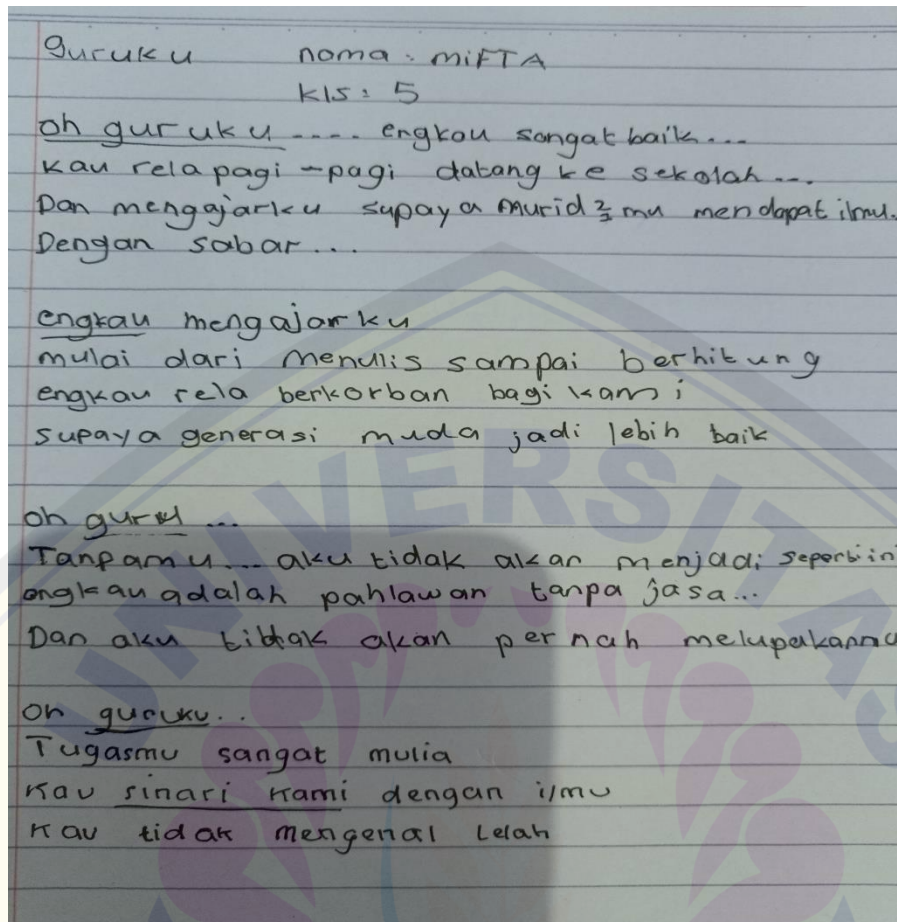 Guruku nama: MiFTA
kls: 5
oh guruku .... engkau sangat baik...
kau rela pagi-pagi datang ke sekolah...
Dan mengajarku supaya murid2mu mendapat ilmu.
Dengan sabar...
engkau mengajarku
mulai dari menulis sampai berhitung
engkau rela berkorban bagi kami
supaya generasi muda jadi lebih baik
oh guru ...
Tanpamu... aku tidak akan menjadi seperti ini
engkau adalah pahlawan tanpa jasa...
Dan aku tidak akan pernah melupakanmu
oh guruku..
Tugasmu sangat mulia
Kau sinari kami dengan ilmu
Kau tidak mengenal lelah
UNIVERSITAS